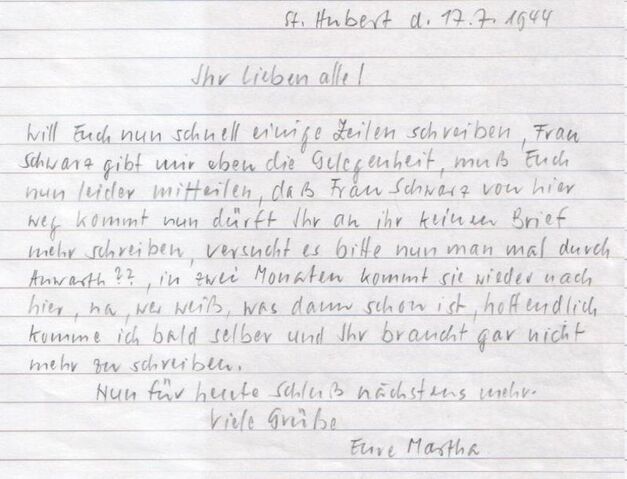 St. Hubert d. 17.7.1944
Ihr Lieben alle!
Will Euch nun schnell einige Zeilen schreiben, Frau
Schwarz gibt mir eben die Gelegenheit, muß Euch
nun leider mitteilen, daß Frau Schwarz von hier
weg kommt nun dürft Ihr an ihr keinen Brief
mehr schreiben, versucht es bitte nun man mal durch
Anwarth??, in zwei Monaten kommt sie wieder nach
hier, na, wer weiß, was dann schon ist, hoffendlich
komme ich bald selber und Ihr braucht gar nicht
mehr zu schreiben.
Nun für heute Schluß nächstens mehr.
Viele Grüße
Eure Martha